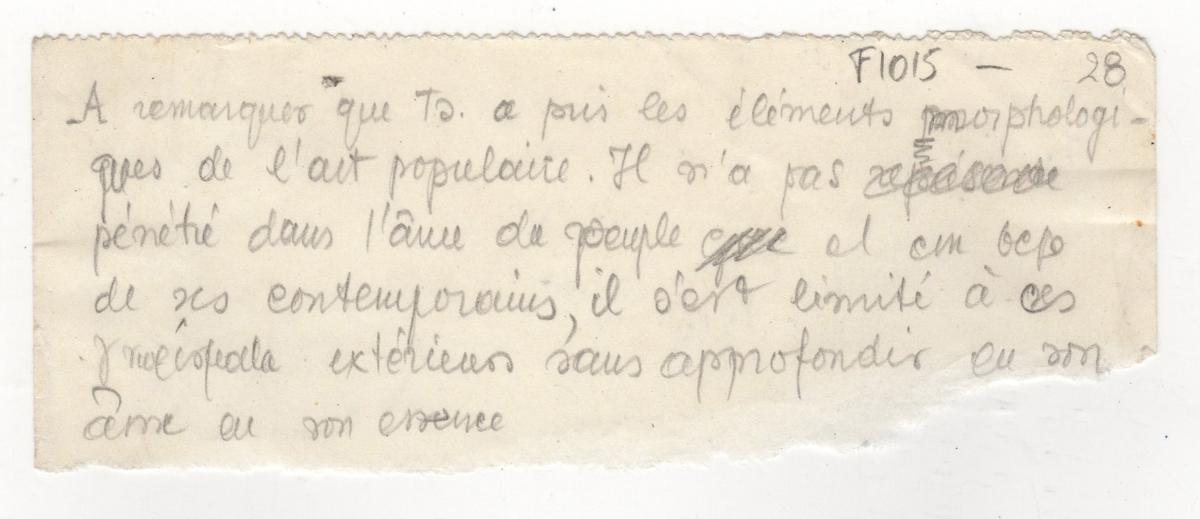 F1015 — 28
A remarquer que Ts. a pris les éléments morphologi-
ques de l'art populaire. Il n'a pas
pénétré dans l'âme du peuple et cm bcp
de ses contemporains, il s'est limité à ces
γνωρίσματα extérieurs sans approfondir en son
âme en son essence